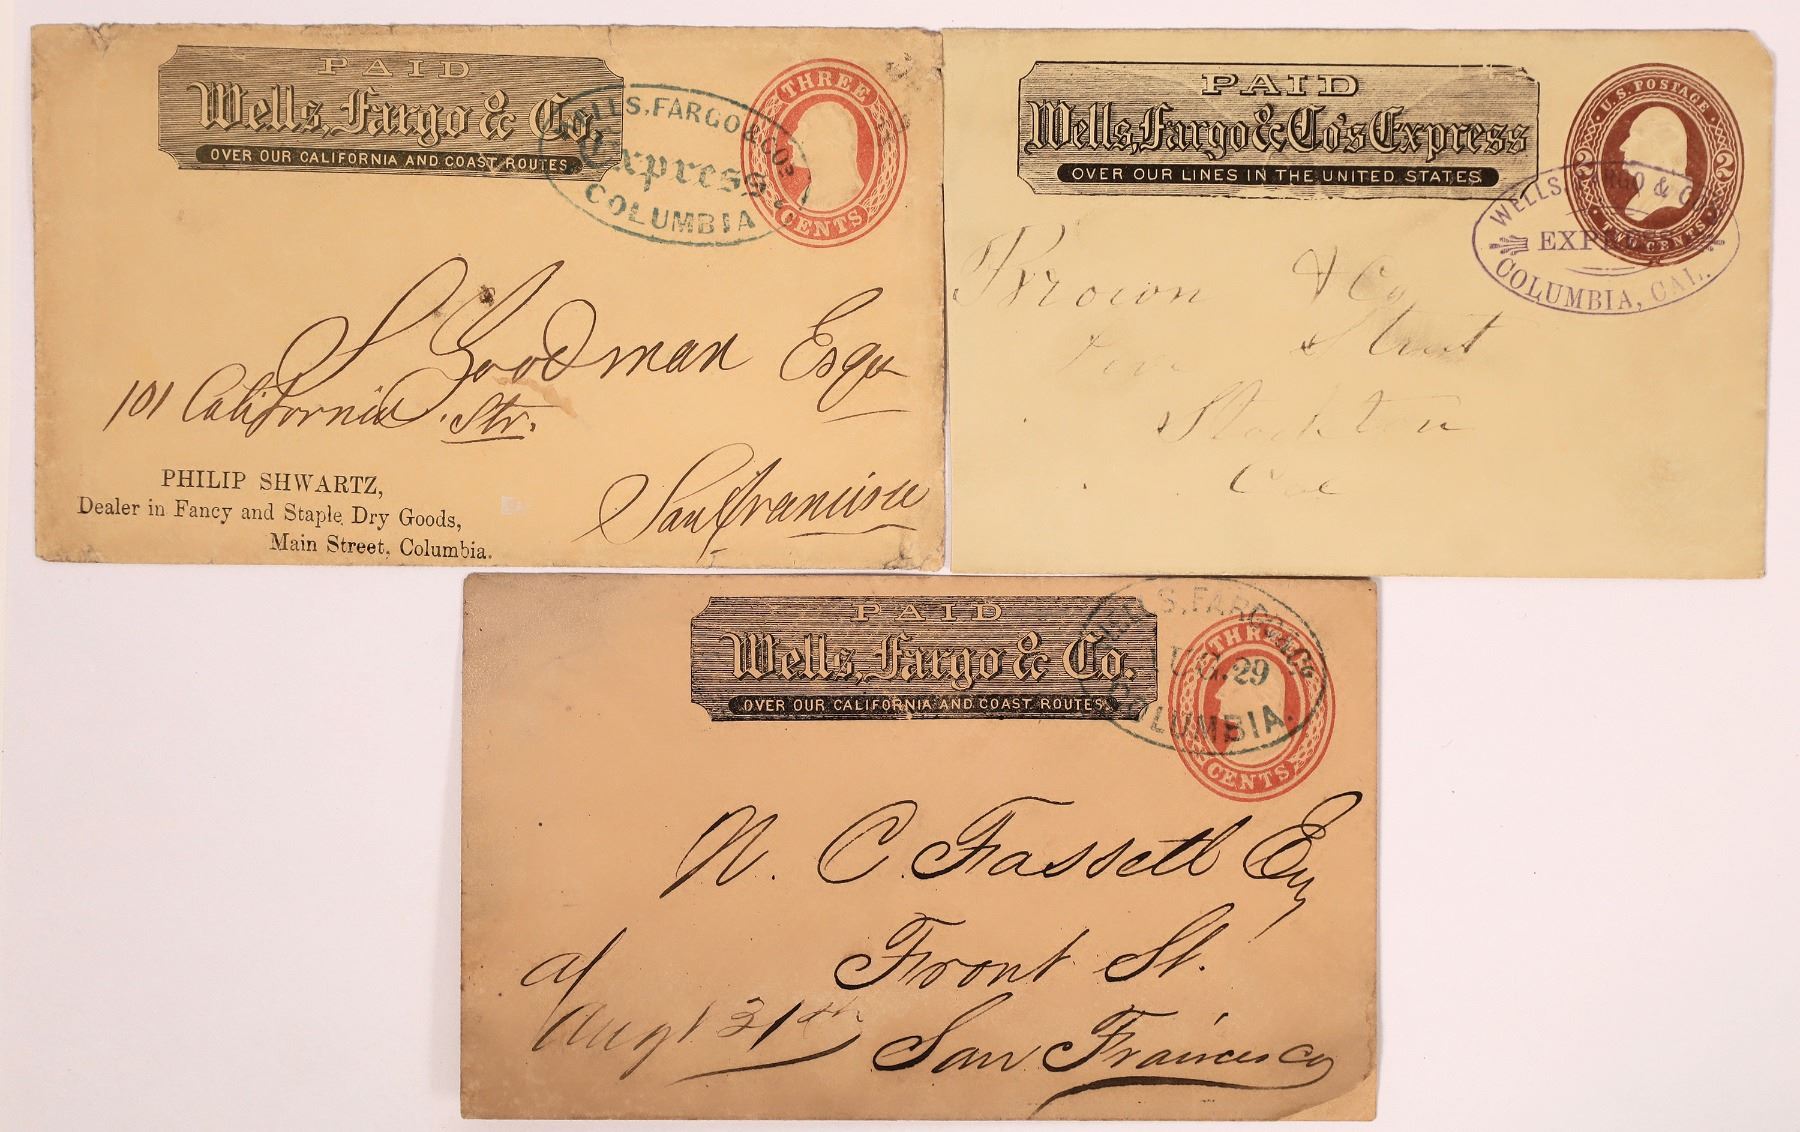 PAID
Wells, Fargo & Co.
OVER OUR CALIFORNIA AND COAST ROUTES.
WELLS, FARGO & COS
Express
COLUMBIA
THREE
CENTS
S Goodman Esqr
101 California Str.
San Francisco
PHILIP SHWARTZ,
Dealer in Fancy and Staple Dry Goods,
Main Street, Columbia.
PAID
Wells, Fargo & Co's Express
OVER OUR LINES IN THE UNITED STATES
U.S. POSTAGE
2 2
TWO CENTS
WELLS FARGO & CO
EXPRESS
COLUMBIA, CAL.
Brown & Co
Street
Stockton
Cal
PAID
Wells, Fargo & Co.
OVER OUR CALIFORNIA AND COAST ROUTES.
WELLS, FARGO & Co
29
COLUMBIA.
THREE
CENTS
N. C. Fassett Esq
Front St.
San Francisco
a/
Augt 31th